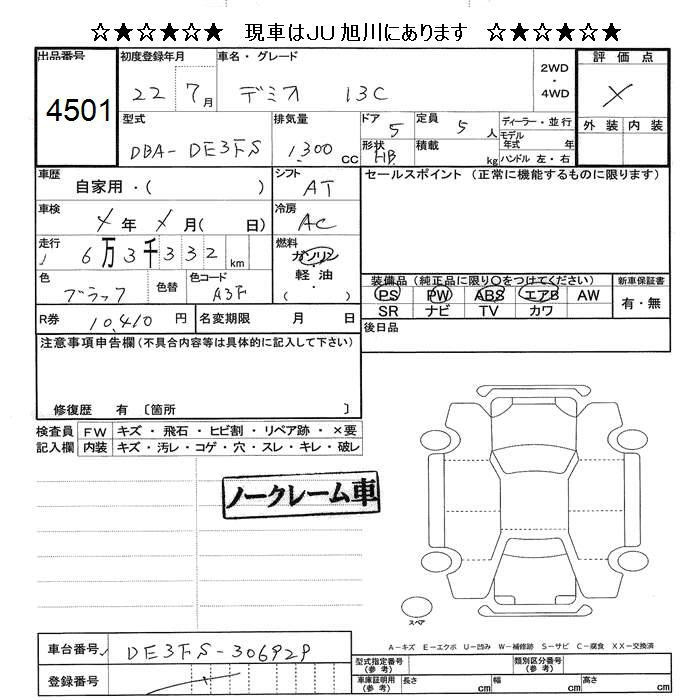 ☆★☆★☆★ 現車はJU旭川にあります ☆★☆★☆★
出品番号 初度登録年月 車名・グレード 2WD ・ 4WD 評価点
4501 22 7月 デミオ 13C X
型式 排気量 ドア 定員 ディーラー・並行 外装 内装
DBA-DE3FS 1,300 cc 5 5 人 モデル年式 年
形状 積載 kg ハンドル 左・右
HB
車歴 シフト セールスポイント (正常に機能するものに限ります)
自家用・( ) AT
車検 冷房
X 年 X 月( 日) AC
走行 燃料
6万3千332 km ガソリン
軽油
( )
色 色替 色コード
ブラック A3F
装備品 (純正品に限り○をつけてください) 新車保証書
PS PW ABS エアB AW 有・無
SR ナビ TV カワ
R券 10,410 円 名変期限 月 日
後日品
注意事項申告欄(不具合内容等は具体的に記入して下さい)
修復歴 有 〔箇所 〕
検査員 FW キズ・飛石・ヒビ割・リペア跡・×要
記入欄 内装 キズ・汚レ・コゲ・穴・スレ・キレ・破レ
ノークレーム車
スペア
A-キズ E-エクボ U-凹み W-補修跡 S-サビ C-腐食 XX-交換済
車台番号 DE3FS-306929
型式指定番号(参考) 類別区分番号(参考)
登録番号
車庫証明用(参考) 長さ cm 幅 cm 高さ cm